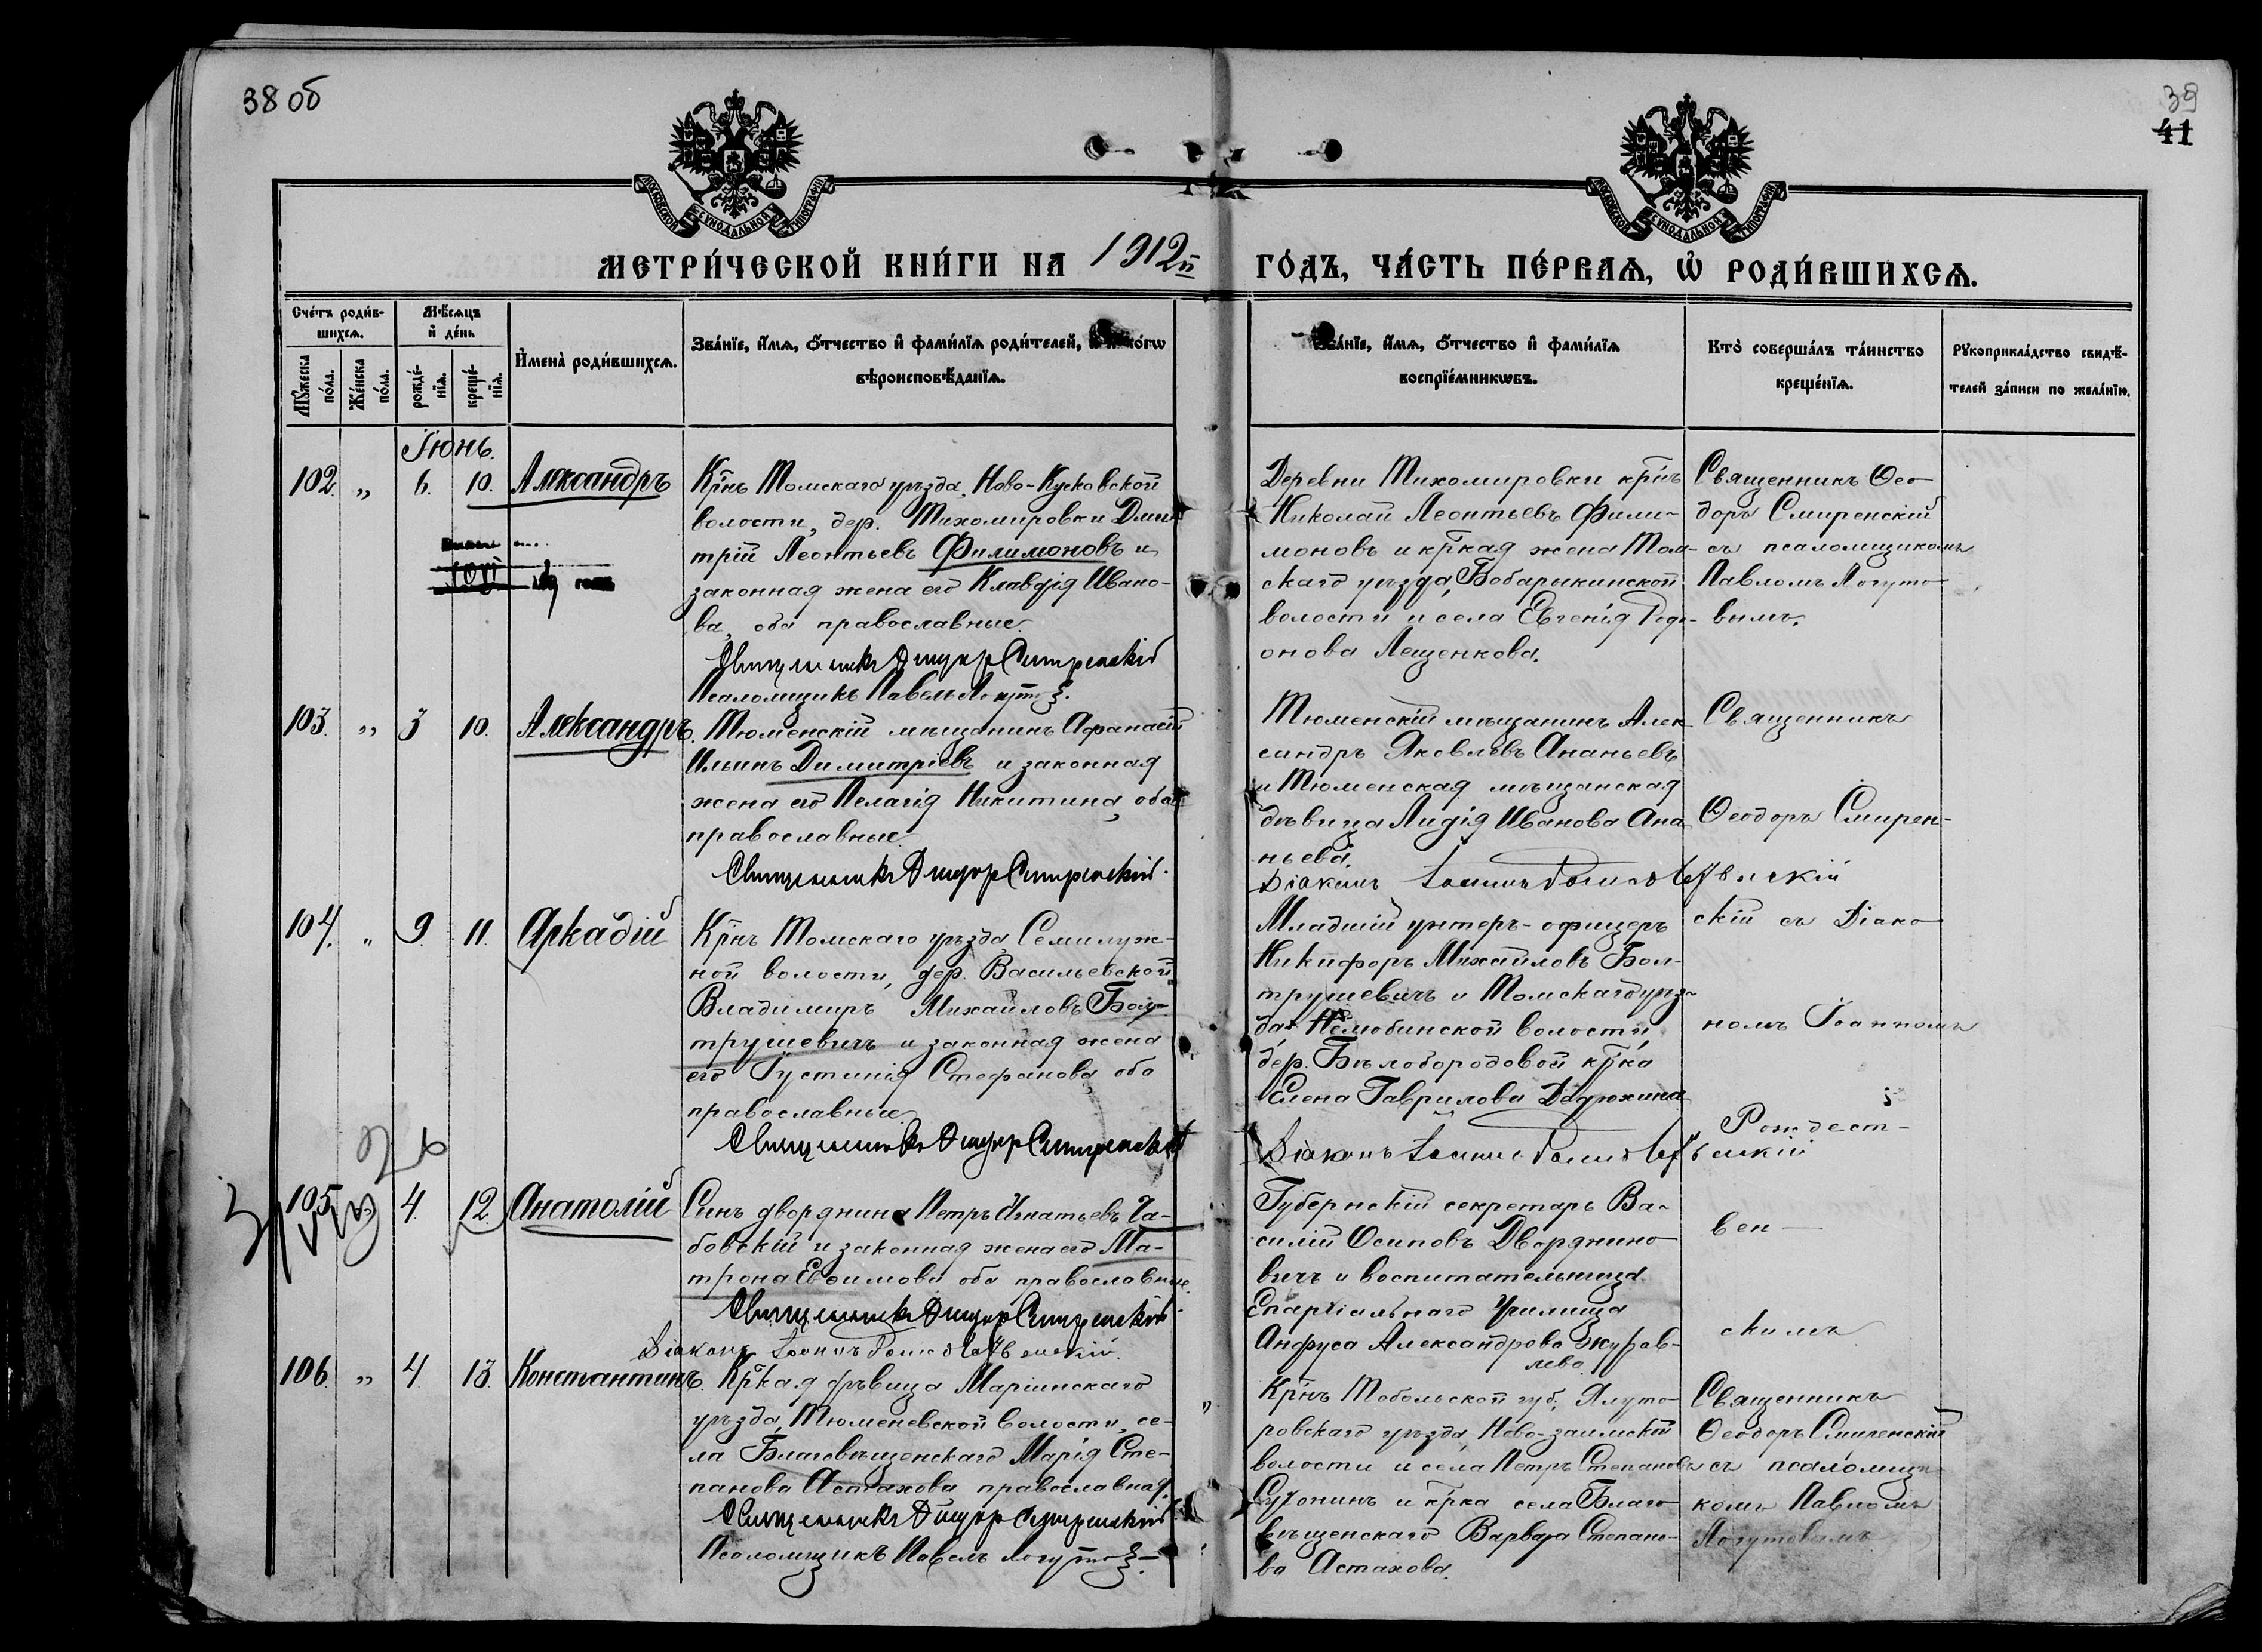 38 об
39
41
МОСКОВСКОЙ СѴНОДАЛЬНОЙ ТИПОГРАФІИ
МОСКОВСКОЙ СѴНОДАЛЬНОЙ ТИПОГРАФІИ
МЕТРИ́ЧЕСКОЙ КНИ́ГИ НА 1912й ГО́ДЪ, ЧА́СТЬ ПЕ́РВАѦ, Ѡ҆ РОДИ́ВШИХСѦ.
Сче́тъ роди́в-
шихсѧ.
Мꙋ́жеска по́ла.
Же́нска по́ла.
Мѣ́сѧцъ
и҆ де́нь
рожде́-
нїѧ.
креще́-
нїѧ.
И҆мена̀ роди́вшихсѧ.
Зва́нїе, и҆́мѧ, ѻ҆́тчество и҆ фами́лїѧ роди́телей, и҆ како́гѡ
вѣроисповѣ́данїѧ.
Зва́нїе, и҆́мѧ, ѻ҆́тчество и҆ фами́лїѧ
воспрїе́мникѡвъ.
Кто̀ соверша́лъ та́инство
креще́нїѧ.
Рꙋкоприкла́дство свидѣ́-
телей за́писи по жела́нїю.
Іюнь.
102. „ 6. 10. Александръ
Кр̃нъ Томскаго уѣзда, Ново-Кусковской
волости, дер. Тихомировки Дми-
трій Леонтьевъ Филимоновъ и
законная жена его Клавдія Ивано-
ва, оба православные.
Священникъ Ѳеодоръ Смиренскій
Псаломщикъ Павелъ Логутов.
Деревни Тихомировки кр̃нъ
Николай Леонтьевъ Фили-
моновъ и кр̃кая жена Том-
скаго уѣзда, Бобарыкинской
волости и села Евгенія Роди-
онова Лещенкова.
Священникъ Ѳео-
доръ Смиренскій
съ псаломщикомъ
Павломъ Логуто-
вымъ.
103. „ 3 10. Александръ.
Тюменскій мѣщанинъ Афанасій
Ильинъ Димитріевъ и законная
жена его Пелагія Никитина, оба
православные.
Священникъ Ѳеодоръ Смиренскій.
Тюменскій мѣщанинъ Алек-
сандръ Яковлевъ Ананьевъ
и Тюменская мѣщанская
дѣвица Лидія Иванова Ана-
ньева.
Діаконъ Іоаннъ Рождественскій
Священникъ
Ѳеодоръ Смирен-
скій съ Діако-
номъ Іоанномъ
Рождест-
вен-
скимъ
104. „ 9. 11. Аркадій
Кр̃нъ Томскаго уѣзда, Семилуж-
ной волости, дер. Васильевской
Владимиръ Михайловъ Бол-
трушевичъ и законная жена
его Іустинія Стефанова, оба
православные.
Священникъ Ѳеодоръ Смиренскій
Младшій унтеръ-офицеръ
Никифоръ Михайловъ Бол-
трушевичъ и Томскаго уѣз-
да Нелюбинской волости,
дер. Бѣлобородовой кр̃ка
Елена Гаврилова Дѣдюхина
Діаконъ Іоаннъ Рождественскій
105 4. 12. Анатолій
Сынъ дворянина Петръ Игнатьевъ Га-
бовскій и законная жена его Ма-
трона Евѳимова оба православные.
Священникъ Ѳеодоръ Смиренскій
Діаконъ Іоаннъ Рождественскій.
Губернскій секретарь Ва-
силій Осиповъ Дворянино-
вичъ и воспитательница
Епархіальнаго Училища
Анфуса Александрова Журав-
лева.
106 „ 4 13. Константинъ.
Кр̃кая дѣвица Маріинскаго
уѣзда, Тюменевской волости, се-
ла Благовѣщенскаго Марія Сте-
панова Астахова православная.
Священникъ Ѳеодоръ Смиренскій
Псаломщикъ Павелъ Логутов.
Кр̃нъ Тобольской губ., Ялуто-
ровскаго уѣзда, Ново-заимской
волости и села Петръ Степановъ
Сутонинъ и кр̃ка села Благо-
вѣщенскаго Варвара Степано-
ва Астахова.
Священникъ
Ѳеодоръ Смиренскій
съ псаломщи-
комъ Павломъ
Логутовымъ